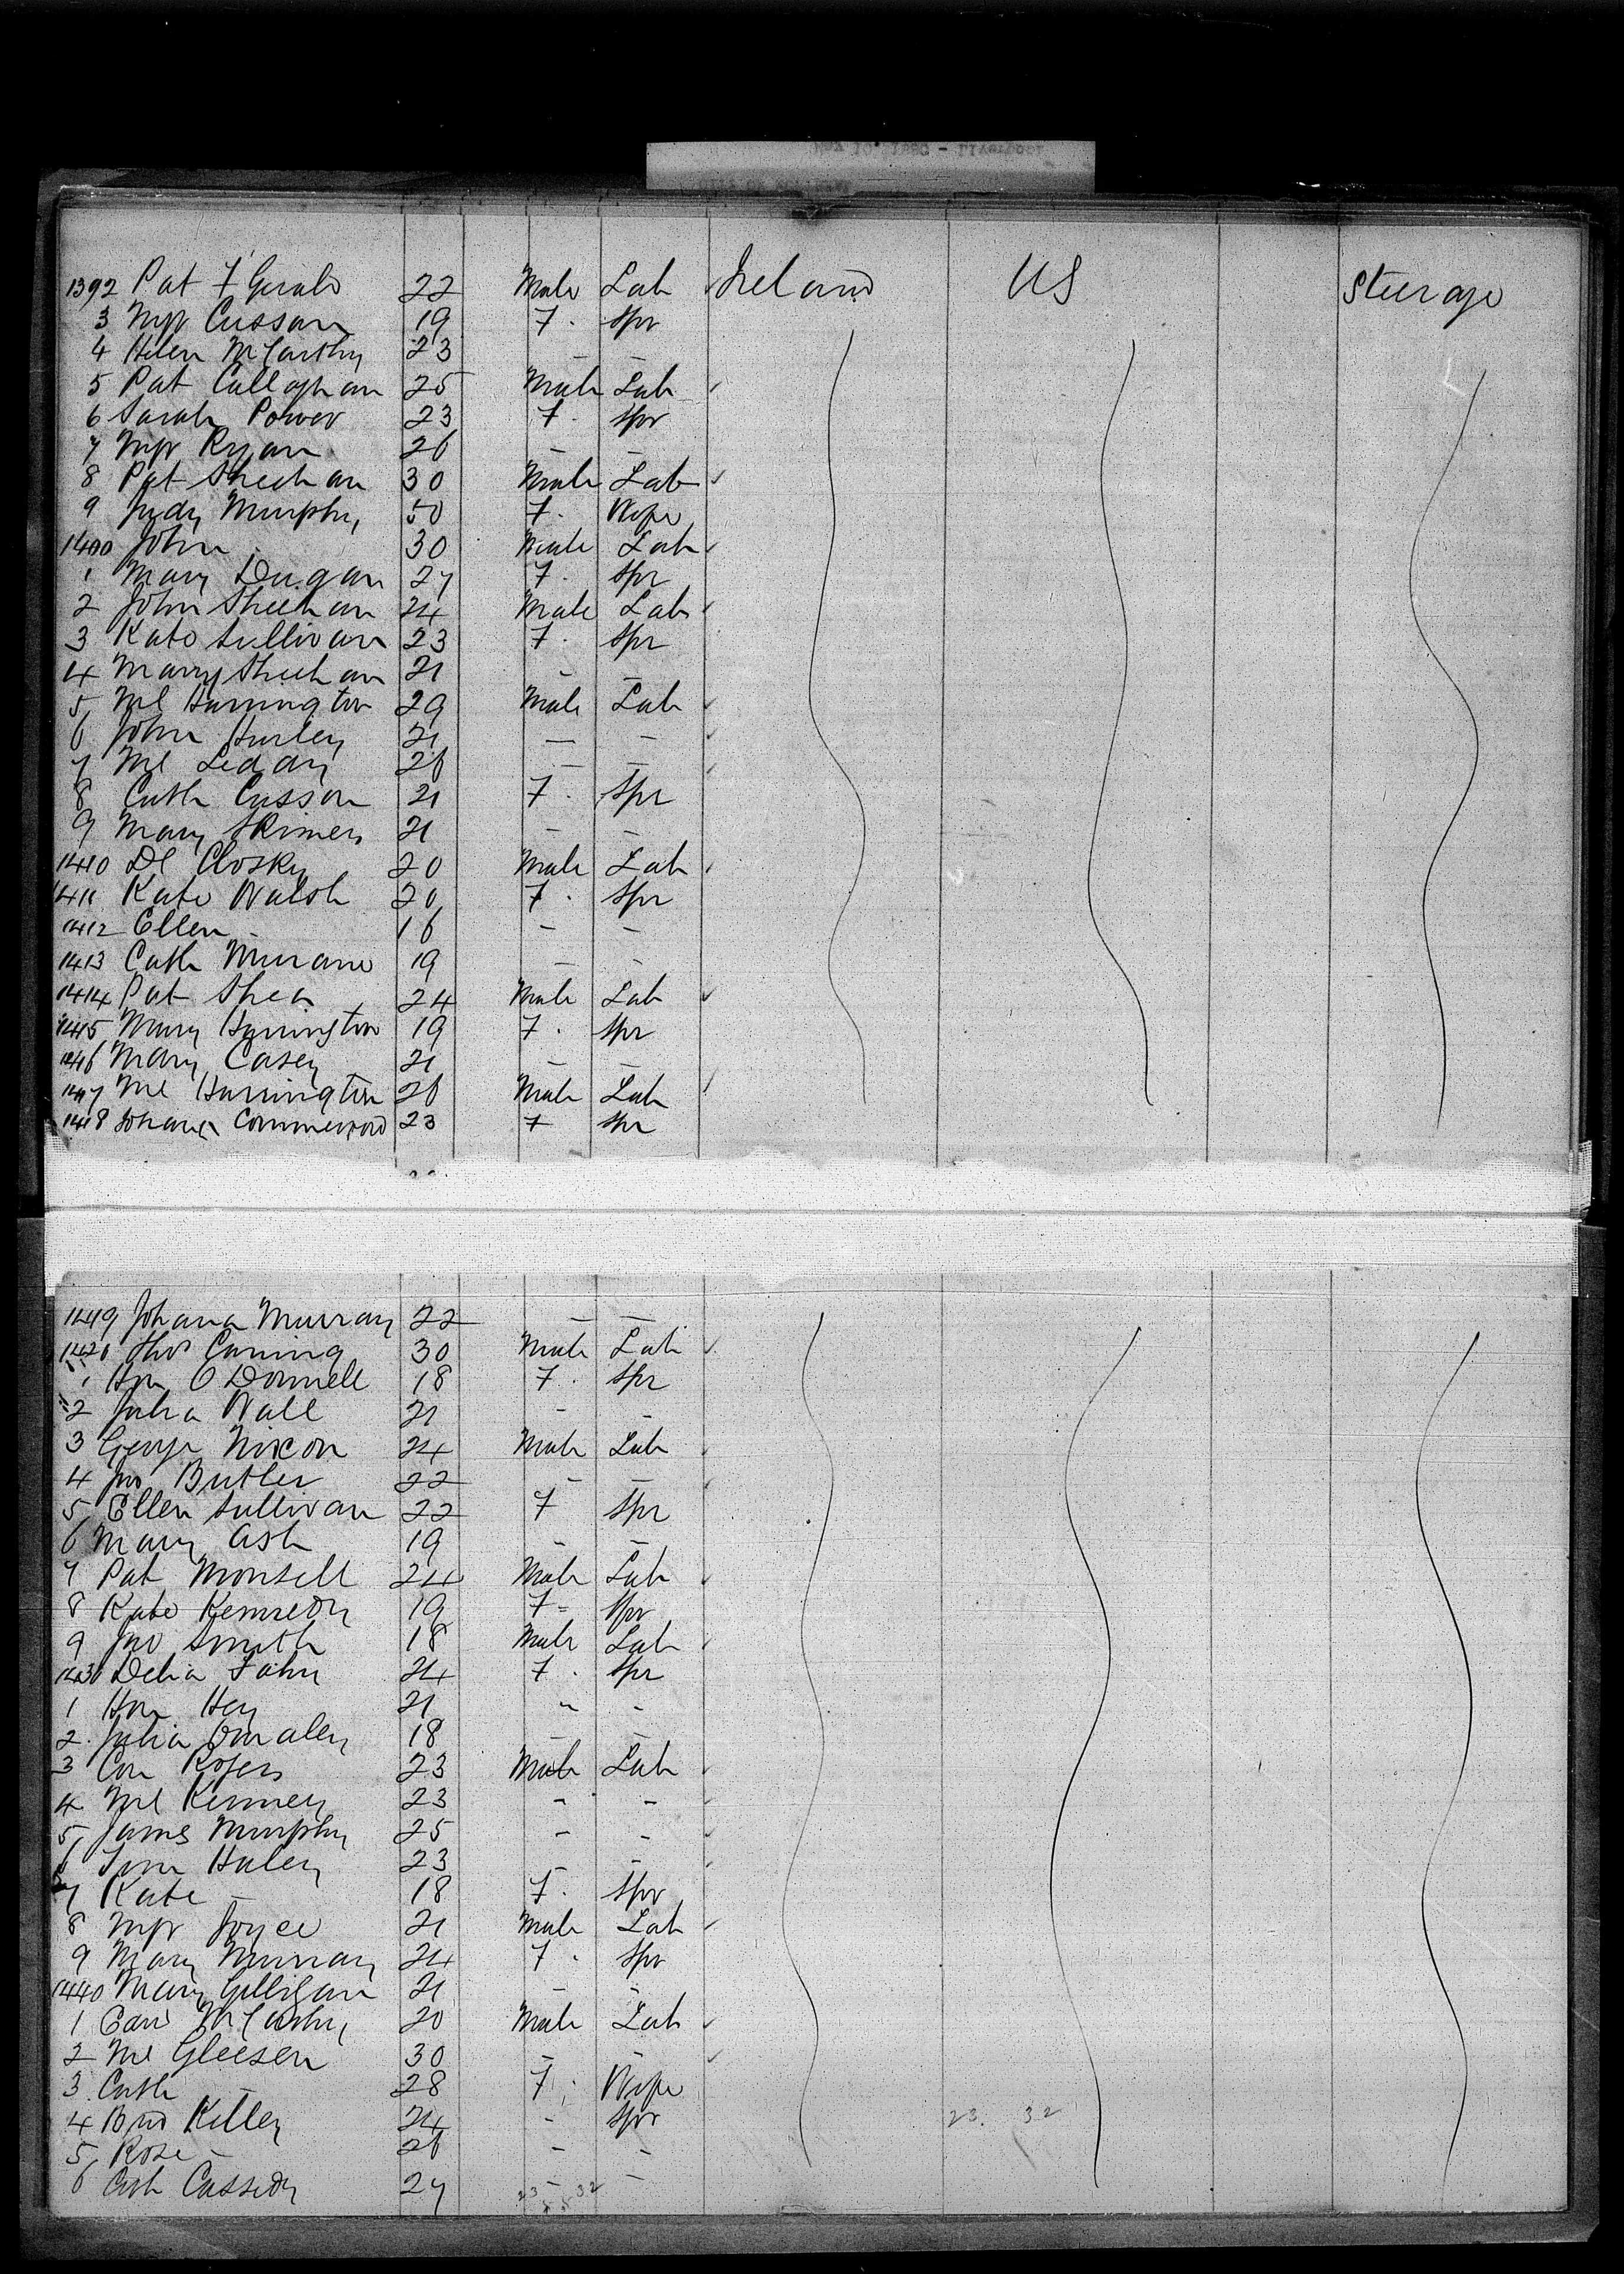 1392 Pat F Gerald 22 Male Lab Ireland US Steerage
3 Mgr Cussan 19 F. Spr
4 Helen McCarthy 23 — —
5 Pat Callaghan 25 Male Lab
6 Sarah Power 23 F. Spr
7 Mgr Ryan 26 — —
8 Pat Sheehan 30 Male Lab
9 Judy Murphy 50 F. Wife
1400 John 30 Male Lab
1 Mary Dugan 27 F. Spr
2 John Sheehan 24 Male Lab
3 Kate Sullivan 23 F. Spr
4 Marry Sheehan 21 — —
5 Ml Harrington 29 Male Lab
6 John Hurley 21 — —
7 Ml Leday 26 — —
8 Cath Cusson 21 F. Spr
9 Mary Skiners 21 — —
1410 Dl Closky 20 Male Lab
1411 Kate Walsh 20 F. Spr
1412 Ellen — 16 — —
1413 Cath Murane 19 — —
1414 Pat Shea 24 Male Lab
1415 Mary Harrington 19 F. Spr
1416 Mary Casey 21 — —
1417 Ml Harrington 26 Male Lab
1418 Johana 23 F Spr
1419 Johana Murray 22 — —
1420 Thos Cuning 30 Male Lab
1 Hon O Donnell 18 F. Spr
2 Julia Wall 21 — —
3 George Nixon 24 Male Lab
4 Jno Butler 22 — —
5 Ellen Sullivan 22 F Spr
6 Mary Ash 19 — —
7 Pat Monsell 24 Male Lab
8 Kate Kennedy 19 F Spr
9 Jno Smith 18 Male Lab
1430 Delia Fahy 24 F. Spr
1 Hon Hey 21 — —
2 Julia Omaley 18 — —
3 Con Rogers 23 Male Lab
4 Ml Kenney 23 — —
5 James Murphy 25 — —
6 Tom Haley 23 — —
7 Kate — 18 F. Spr
8 Mgr Joyce 21 Male Lab
9 Mary Murray 24 F. Spr
1440 Mary Gilligan 21 — —
1 McCarthy 20 Male Lab
2 Ml Gleesen 30 — —
3 Cath — 28 F. Wife
4 Brid Killey 24 — Spr 23. 32
5 Rose — 26 — —
6 Cath Cassidy 27 — —